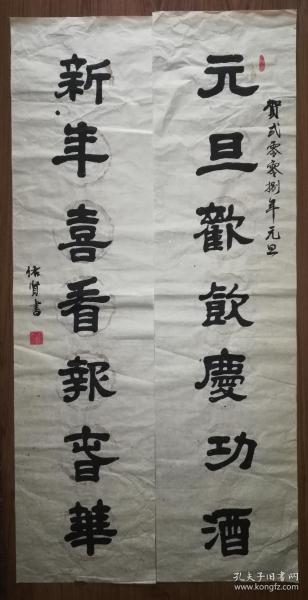 賀弍零零捌年元旦
元旦歡飲慶功酒
新年喜看報春華
佑賢書
孔夫子旧书网
www.kongfz.com